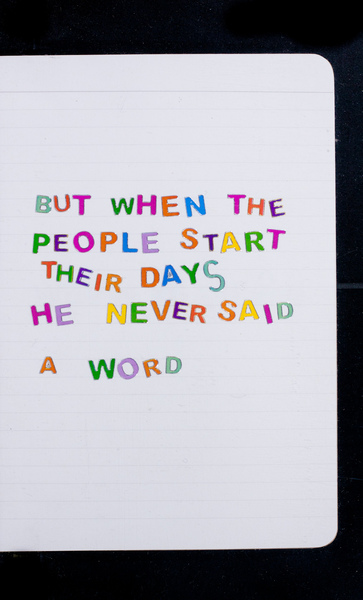 BUT WHEN THE
PEOPLE START
THEIR DAYS
HE NEVER SAID
A WORD